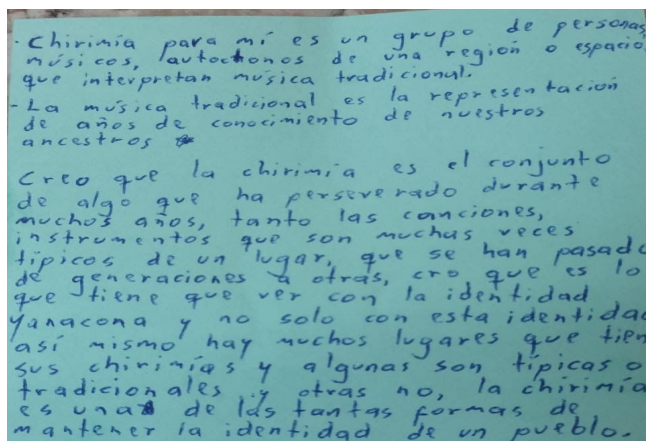 - Chirimía para mí es un grupo de personas
músicos, autoctonos de una región o espacio
que interpretan música tradicional.
- La música tradicional es la representación
de años de conocimiento de nuestros
ancestros
Creo que la chirimía es el conjunto
de algo que ha perseverado durante
muchos años, tanto las canciones,
instrumentos que son muchas veces
típicos de un lugar, que se han pasado
de generaciones a otras, cro que es lo
que tiene que ver con la identidad
Yanacona y no solo con esta identidad
así mismo hay muchos lugares que tien
sus chirimías y algunas son típicas o
tradicionales y otras no, la chirimía
es una de las tantas formas de
mantener la identidad de un pueblo.